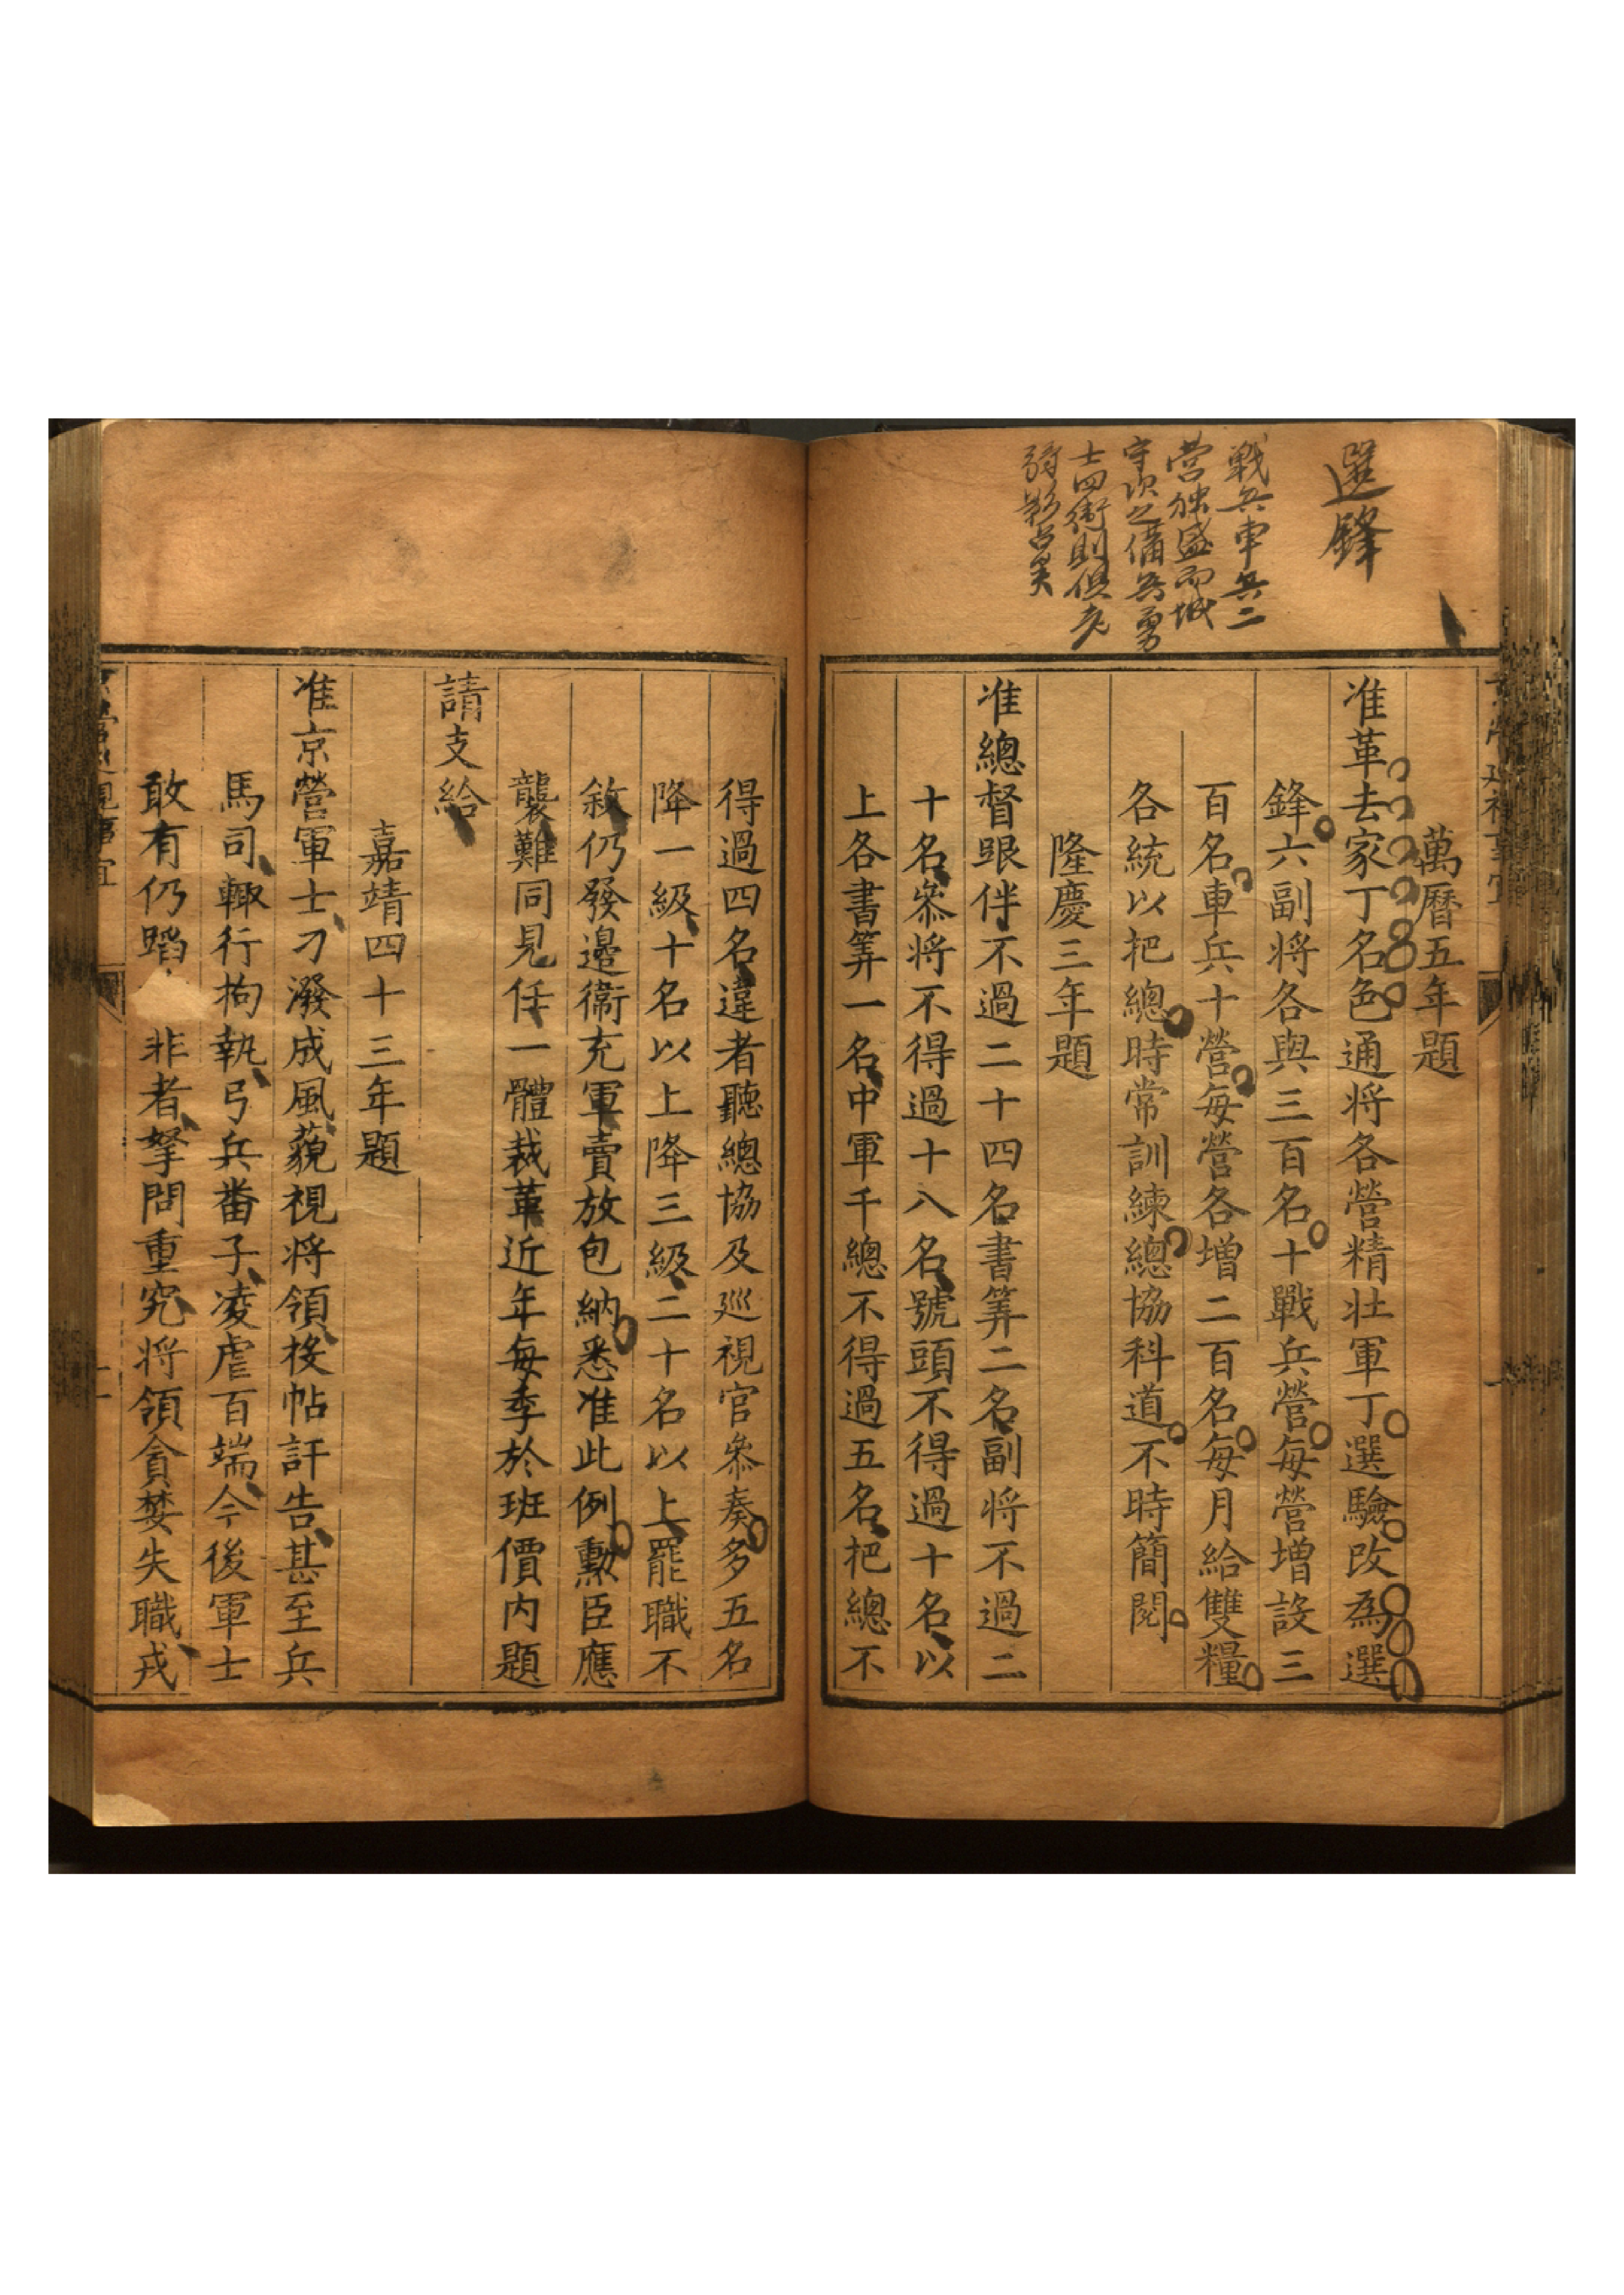 選鋒
戰兵車兵二
營獨盛而城
守次之備兵勇
士四衛則俱老
弱影占矣
萬曆五年題
准革去家丁名色通將各營精壯軍丁選驗改為選
鋒六副將各與三百名十戰兵營每營增設三
百名車兵十營每營各增二百名每月給雙糧
各統以把總時常訓練總協科道不時簡閱
隆慶三年題
准總督跟伴不過二十四名書筭二名副將不過二
十名叅將不得過十八名號頭不得過十名以
上各書筭一名中軍千總不得過五名把總不
得過四名違者聽總協及巡視官叅奏多五名
降一級十名以上降三級二十名以上罷職不
敘仍發邉衛充軍賣放包納悉准此例勲臣應
襲難同見任一體裁革近年每季於班價內題
請支給
嘉靖四十三年題
准京營軍士刁潑成風藐視將領投帖訐告甚至兵
馬司輙行拘執弓兵番子凌虐百端今後軍士
敢有仍蹈非者拏問重究將領貪婪失職戎